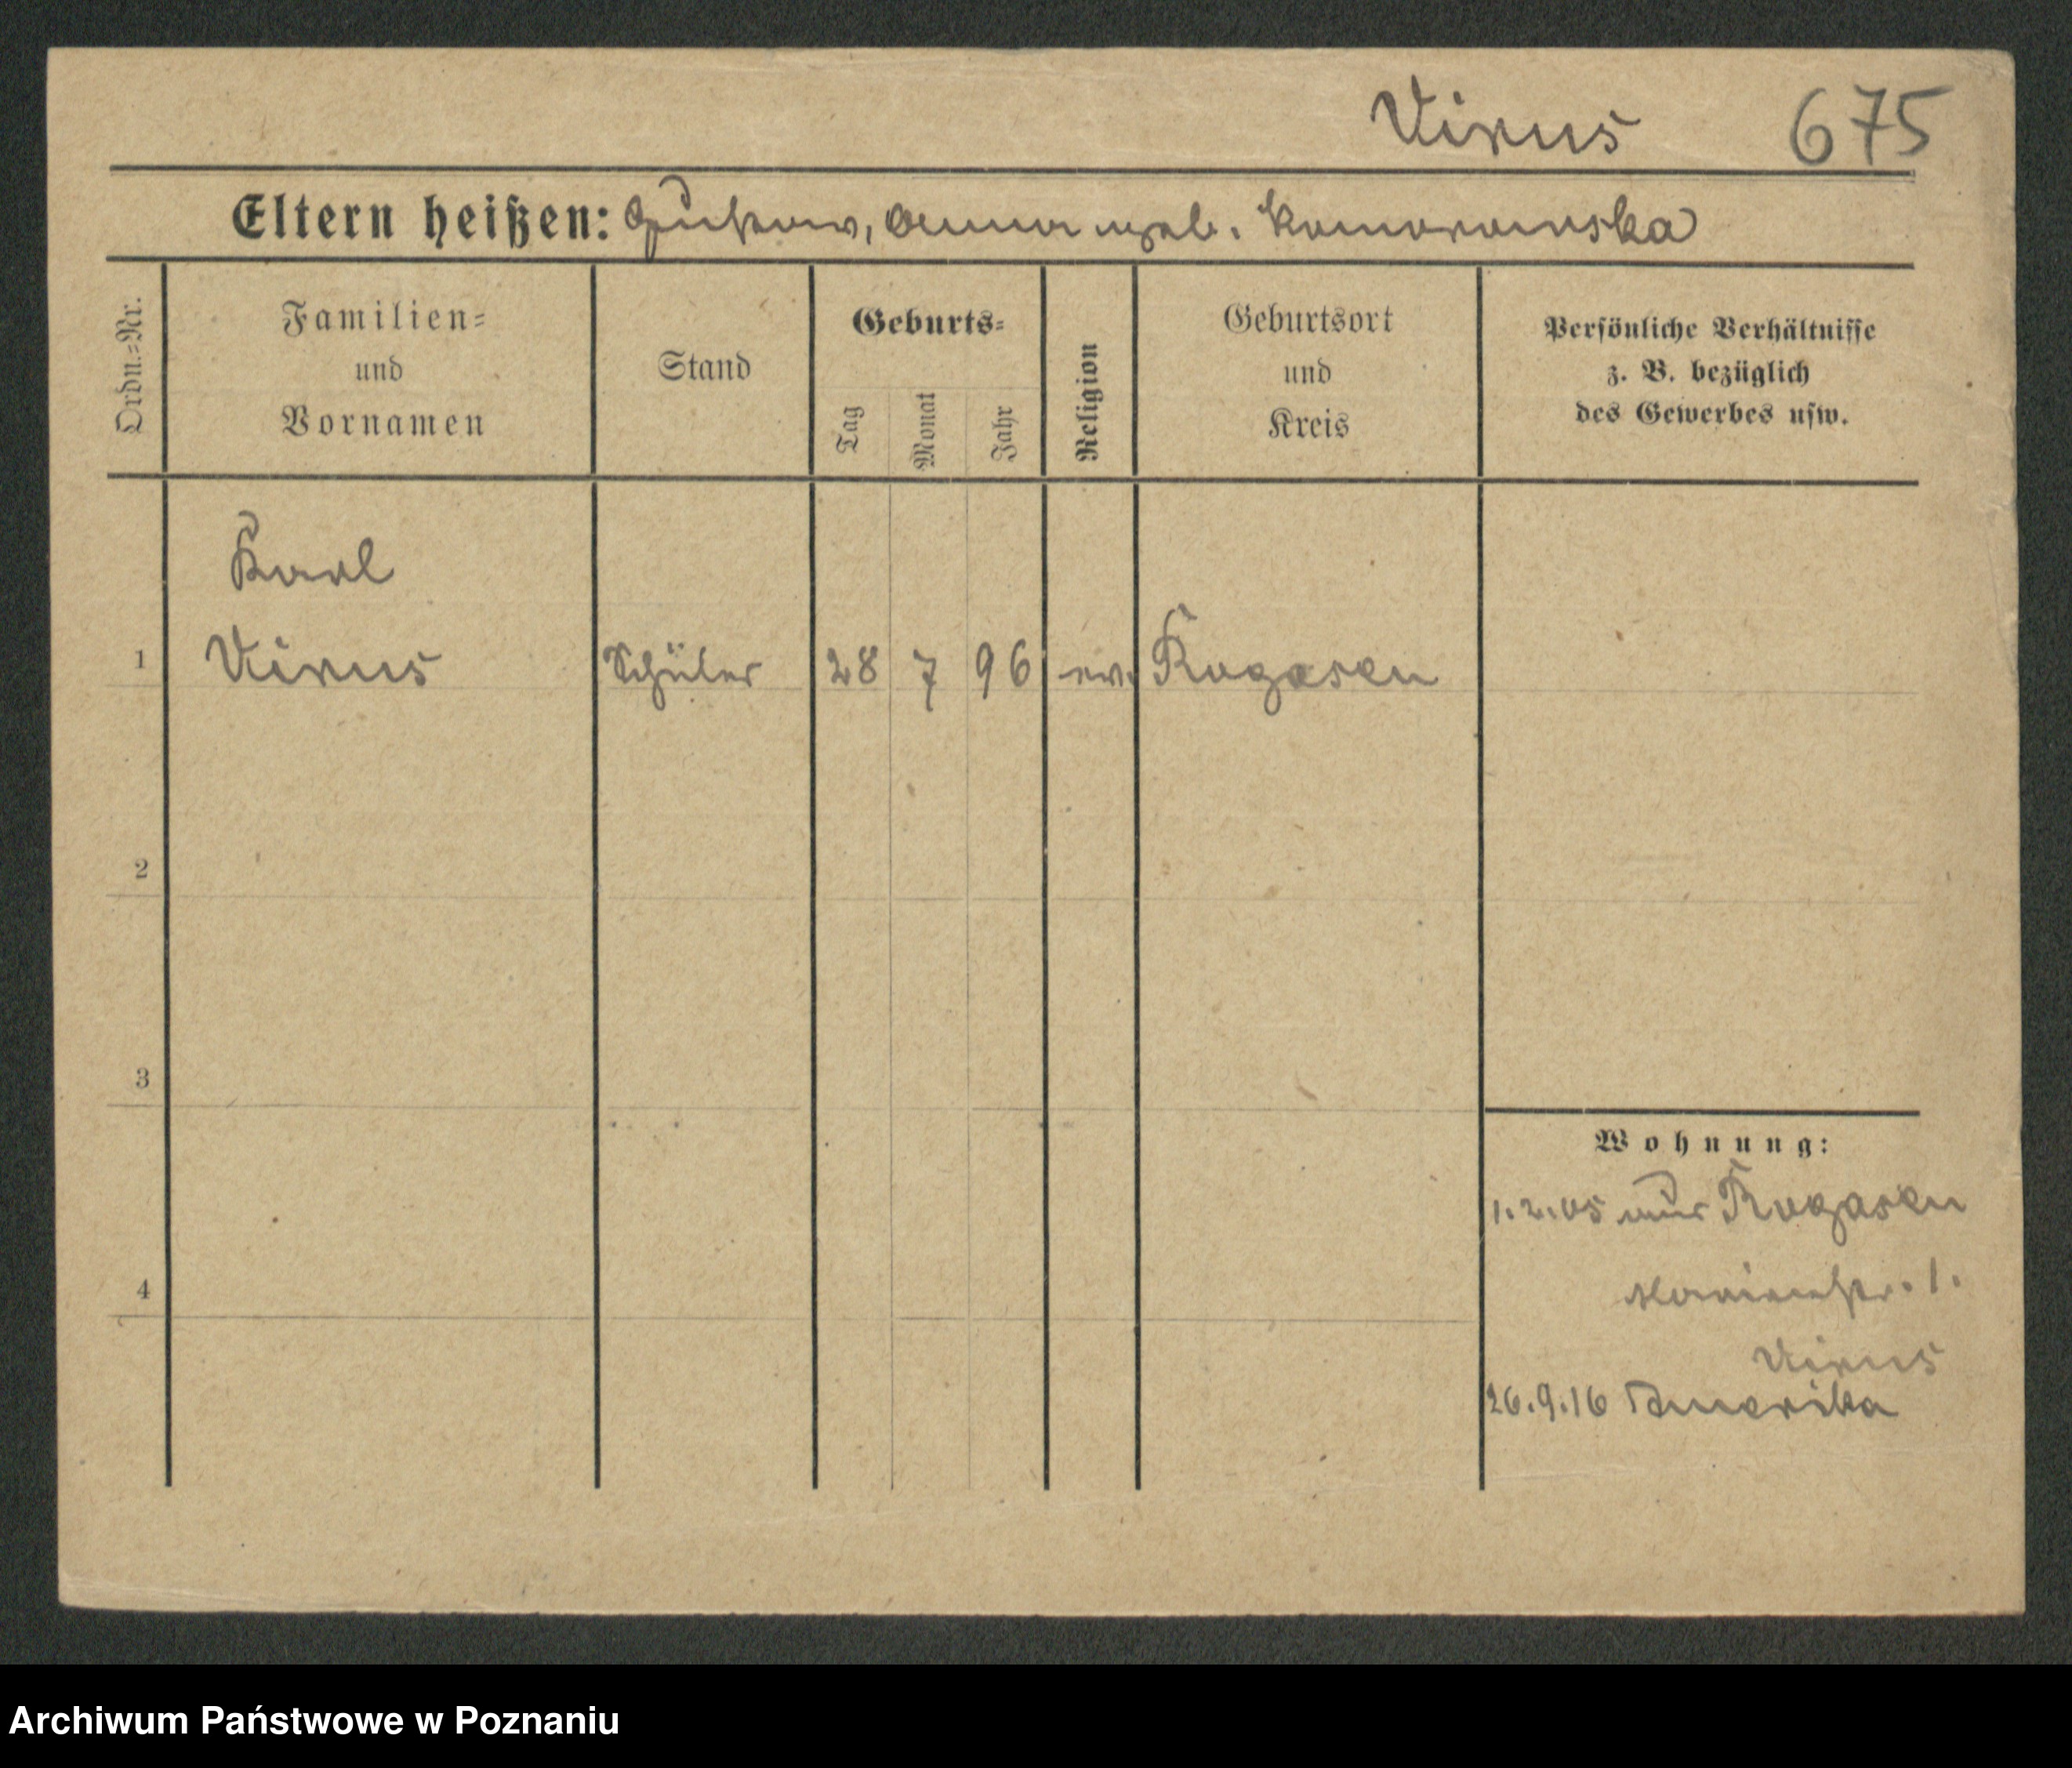 Virus 675
Eltern heißen: Gustav, Anna geb. Komorowska
Ordn.=Nr.
Familien=
und
Vornamen
Stand
Geburts=
Tag
Monat
Jahr
Religion
Geburtsort
und
Kreis
Persönliche Verhältnisse
z. B. bezüglich
des Gewerbes usw.
Karl
1 Virus Schüler 28 7 96 ev. Rogasen
2
3
4
Wohnung:
1.2.05 aus Rogasen
Marienstr. 1.
Virus
26.9.16 Amerika
Archiwum Państwowe w Poznaniu